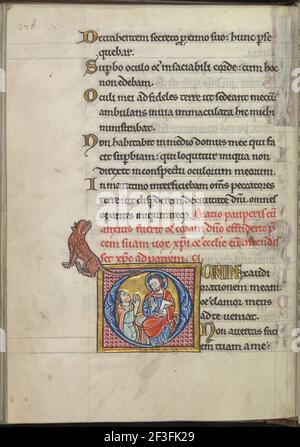 Detrahentem secreto proximo suo : hunc p̄se
quebar.
Supbo oculo et insaciabili corde : cum hoc
non edebam.
Oculi mei ad fideles terre ut sedeant mecū :
ambulans in uia immaculata hic michi
ministrabat.
Non habitabit in medio domus mee qui fa
cit supbiam : qui loquitur iniqua non
direxit in conspectu oculorum meorum.
In matutino interficiebam om̄s peccatores
terre ut disperderem de ciuitate dn̄i. om̄es
operantes iniquitatem. Oratio pauperis cū
anxius fuerit et coram dn̄o effuderit p
cem suam
DOMINE exaudi
orationem meam :
et clamor meus
ad te ueniat.
Non auertas faci
em tuam a me :
2F3FK29